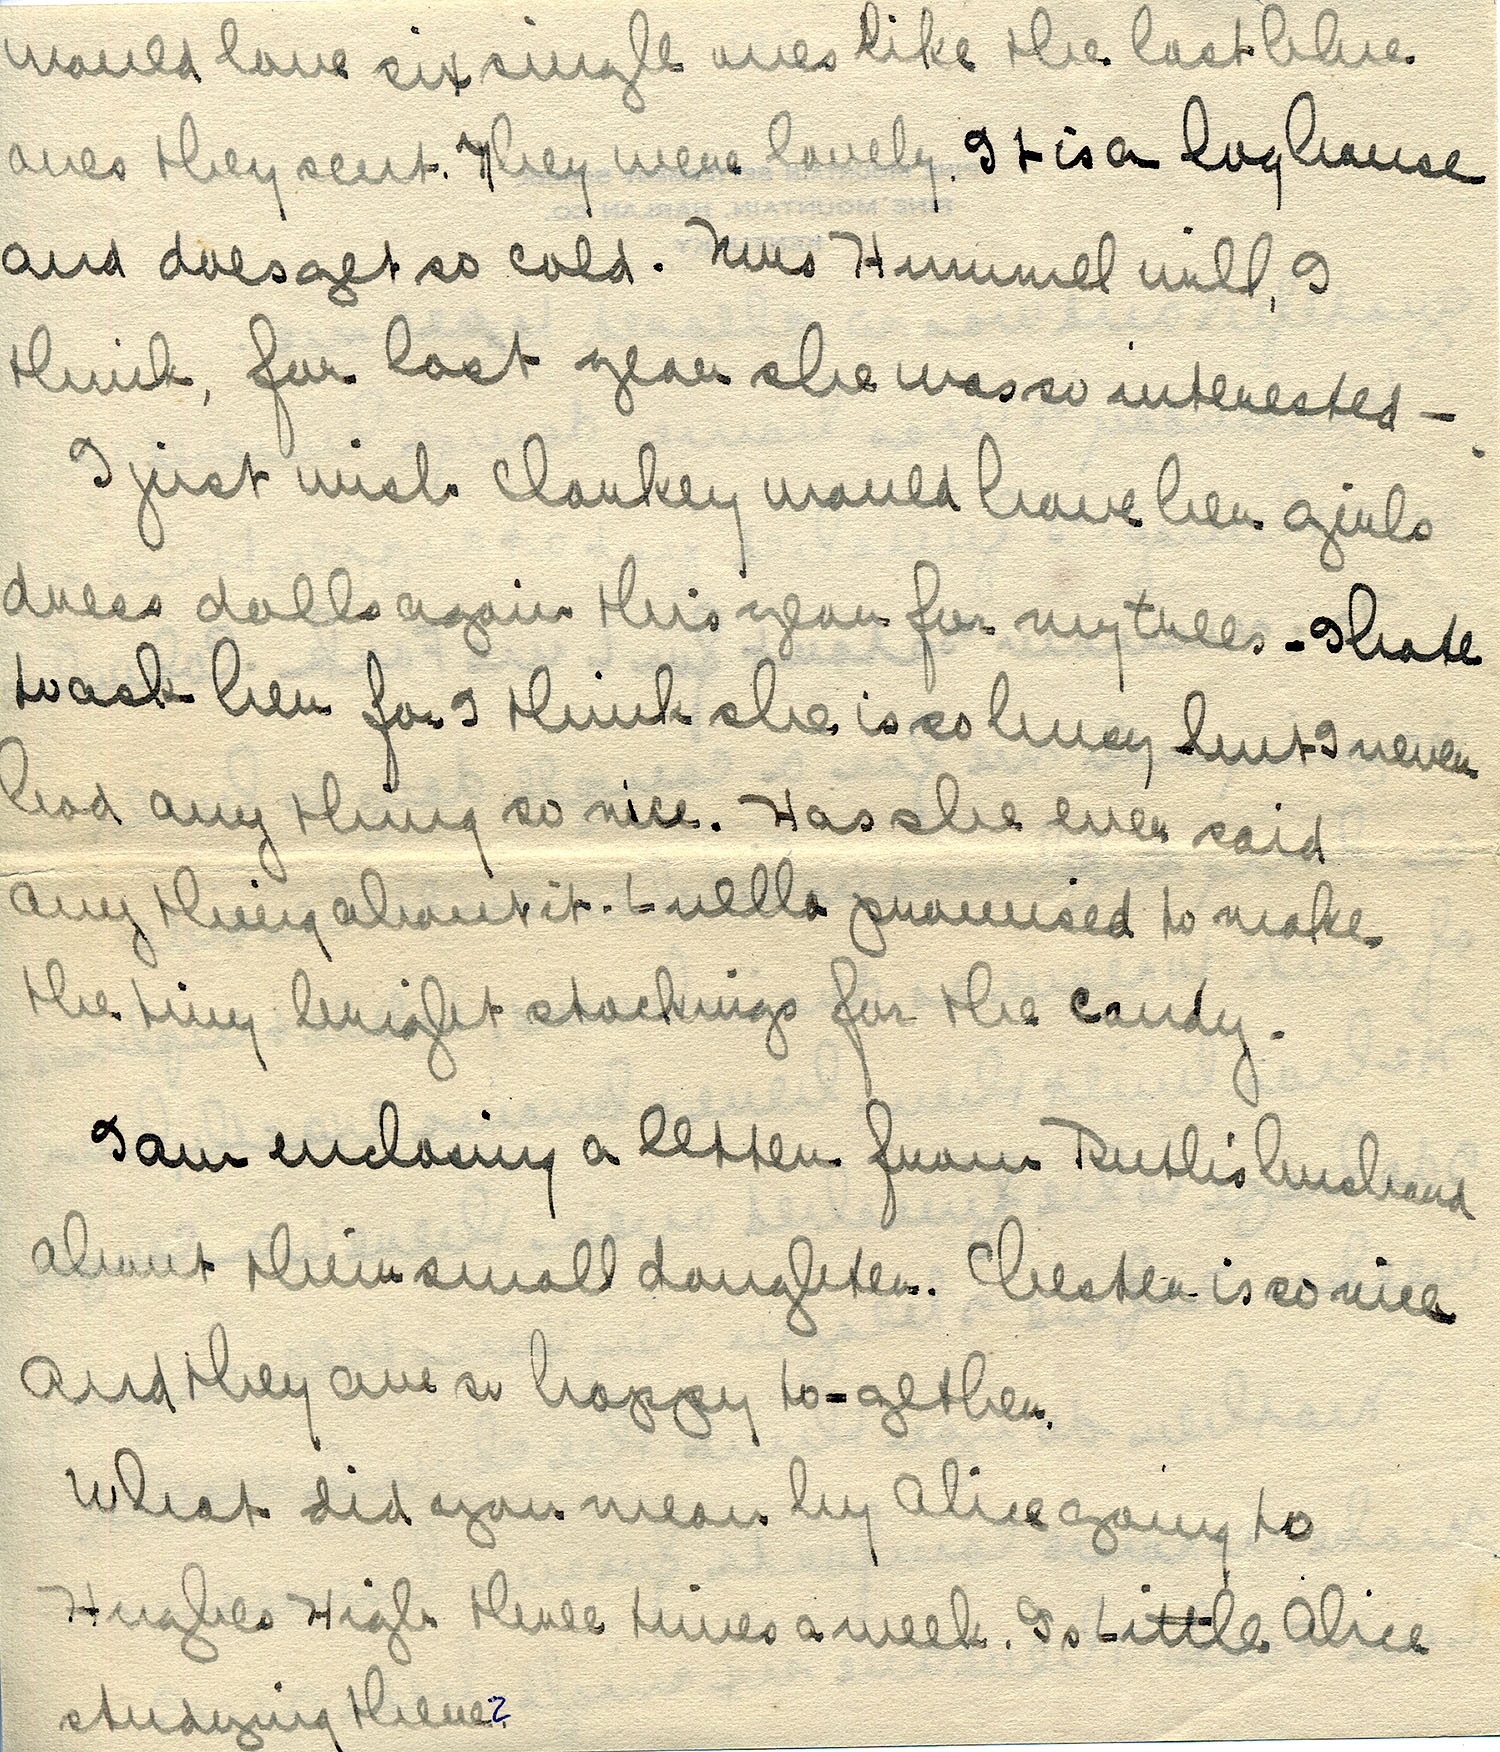 would love six single ones like the last blue
ones they sent. They were lovely. It is a log house
and does get so cold. Mrs Hummel will, I
think, for last year she was so interested –
I just wish Clankey would have her girls
dress dolls again this year for my trees - I hate
to ask her for I think she is so busy but I never
had any thing so nice. Has she ever said
any thing about it. Luella promised to make
the tiny bright stockings for the candy.
I am enclosing a letter from Ruth's husband
about their small daughter. Chester is so nice
and they are so happy to-gether.
What did you mean by Alice going to
Hughes High three times a week. Is Little Alice
studying there?
PINE MOUNTAIN, HARLAN CO.
KENTUCKY